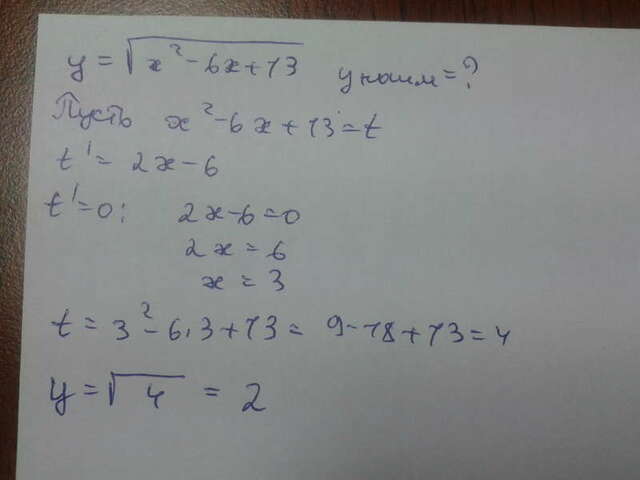 y = √(x² - 6x + 13) y наим = ?
Пусть x² - 6x + 13 = t
t' = 2x - 6
t' = 0: 2x - 6 = 0
2x = 6
x = 3
t = 3² - 6·3 + 13 = 9 - 18 + 13 = 4
y = √4 = 2